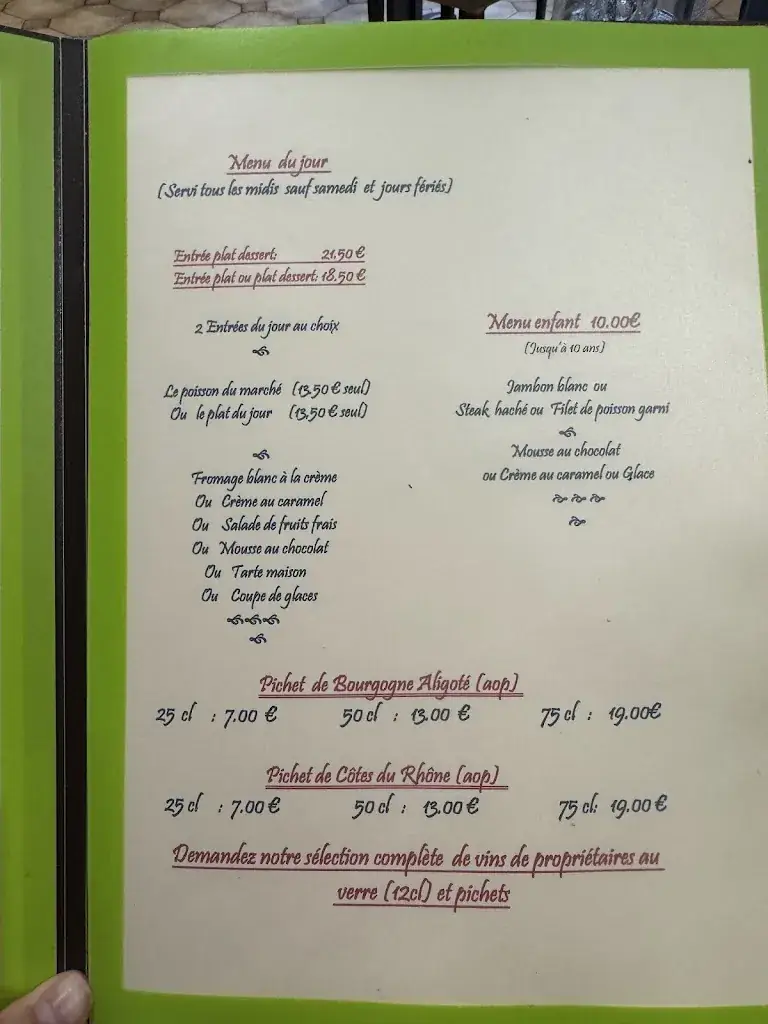 Menu du jour
(Servi tous les midis sauf samedi et jours fériés)
Entrée plat dessert: 21,50 €
Entrée plat ou plat dessert: 18.50 €
2 Entrées du jour au choix
Le poisson du marché (13,50 € seul)
Ou le plat du jour (13,50 € seul)
Fromage blanc à la crème
Ou Crème au caramel
Ou Salade de fruits frais
Ou Mousse au chocolat
Ou Tarte maison
Ou Coupe de glaces
Menu enfant 10.00€
(Jusqu'à 10 ans)
Jambon blanc ou
Steak haché ou Filet de poisson garni
Mousse au chocolat
ou Crème au caramel ou Glace
Pichet de Bourgogne Aligoté (aop)
25 cl : 7.00 € 50 cl : 13.00 € 75 cl : 19.00€
Pichet de Côtes du Rhône (aop)
25 cl : 7.00 € 50 cl : 13.00 € 75 cl: 19.00 €
Demandez notre sélection complète de vins de propriétaires au
verre (12cl) et pichets